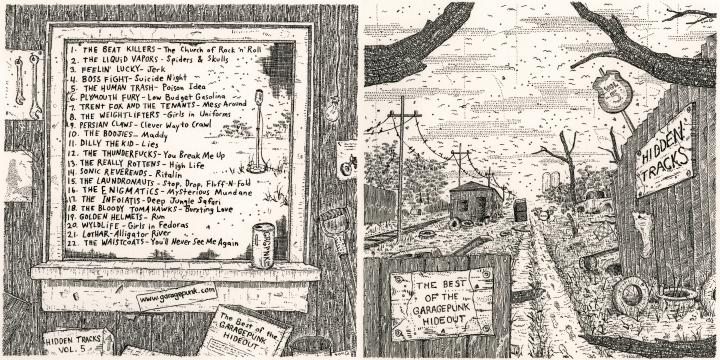 1. THE BEAT KILLERS - The Church of Rock 'n' Roll
2. THE LIQUID VAPORS - Spiders & Skulls
3. FEELIN' LUCKY - Jerk
4. BOSS FIGHT - Suicide Night
5. THE HUMAN TRASH - Poison Idea
6. PLYMOUTH FURY - Low Budget Gasolina
7. TRENT FOX AND THE TENANTS - Mess Around
8. THE WEIGHTLIFTERS - Girls in Uniforms
9. PERSIAN CLAWS - Clever Way to Crawl
10. THE BOOJIES - Maddy
11. DILLY THE KID - Lies
12. THE THUNDERFUCKS - You Break Me Up
13. THE REALLY ROTTENS - High Life
14. SONIC REVERENDS - Ritalin
15. THE LAUNDRONAUTS - Stop, Drop, Fluff-N-Fold
16. THE ENIGMATICS - Mysterious Mundane
17. THE INFOIATIS - Deep Jungle Safari
18. THE BLOODY TOMAHAWKS - Bursting Love
19. GOLDEN HELMETS - Run
20. WYLDLIFE - Girls in Fedoras
21. LOTHAR - Alligator River
22. THE WAISTCOATS - You'll Never See Me Again
www.garagepunk.com
HIDDEN TRACKS
VOL. 5
The Best of the
GARAGEPUNK
HIDEOUT
HIDDEN
TRACKS
THE BEST
OF THE
GARAGEPUNK
HIDEOUT